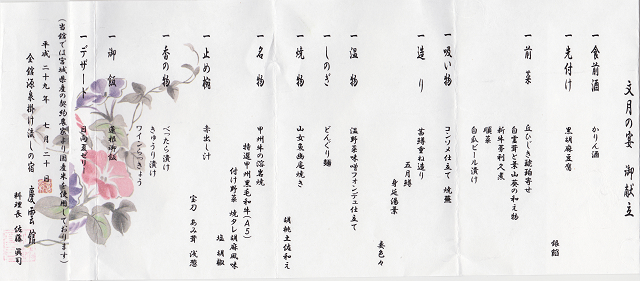 文月の宴 御献立
一 食前酒 かりん酒
一 先付け 黒胡麻豆腐 銀餡
一 前菜 丘ひじき琥珀寄せ
白雲茸と葉山葵の和え物
新牛蒡利久煮
順菜
白瓜ビール漬け
一 吸い物 コンソメ仕立て 焼蕪
一 造り 富鱒重ね造り
五月鱒
身延湯葉
妻色々
一 温物 温野菜味噌フォンデュ仕立て
一 しのぎ どんぐり麺
一 焼物 山女魚幽庵焼き
胡桃土佐和え
一 名物 甲州牛の溶岩焼
特選甲州黒毛和牛(A5)
付け野菜 焼タレ胡麻風味
塩 胡椒
一 止め椀 赤出し汁
宝刀 あみ茸 浅葱
一 香の物 べったら漬け
きゅうり漬け
ワインらっきょう
一 御飯 蓮根御飯
一 デザート
(当館では宮城県産の契約農家より国産米を使用しております)
平成二十九年 七月二十日
全館源泉掛け流しの宿 慶雲館
料理長 佐藤 眞司